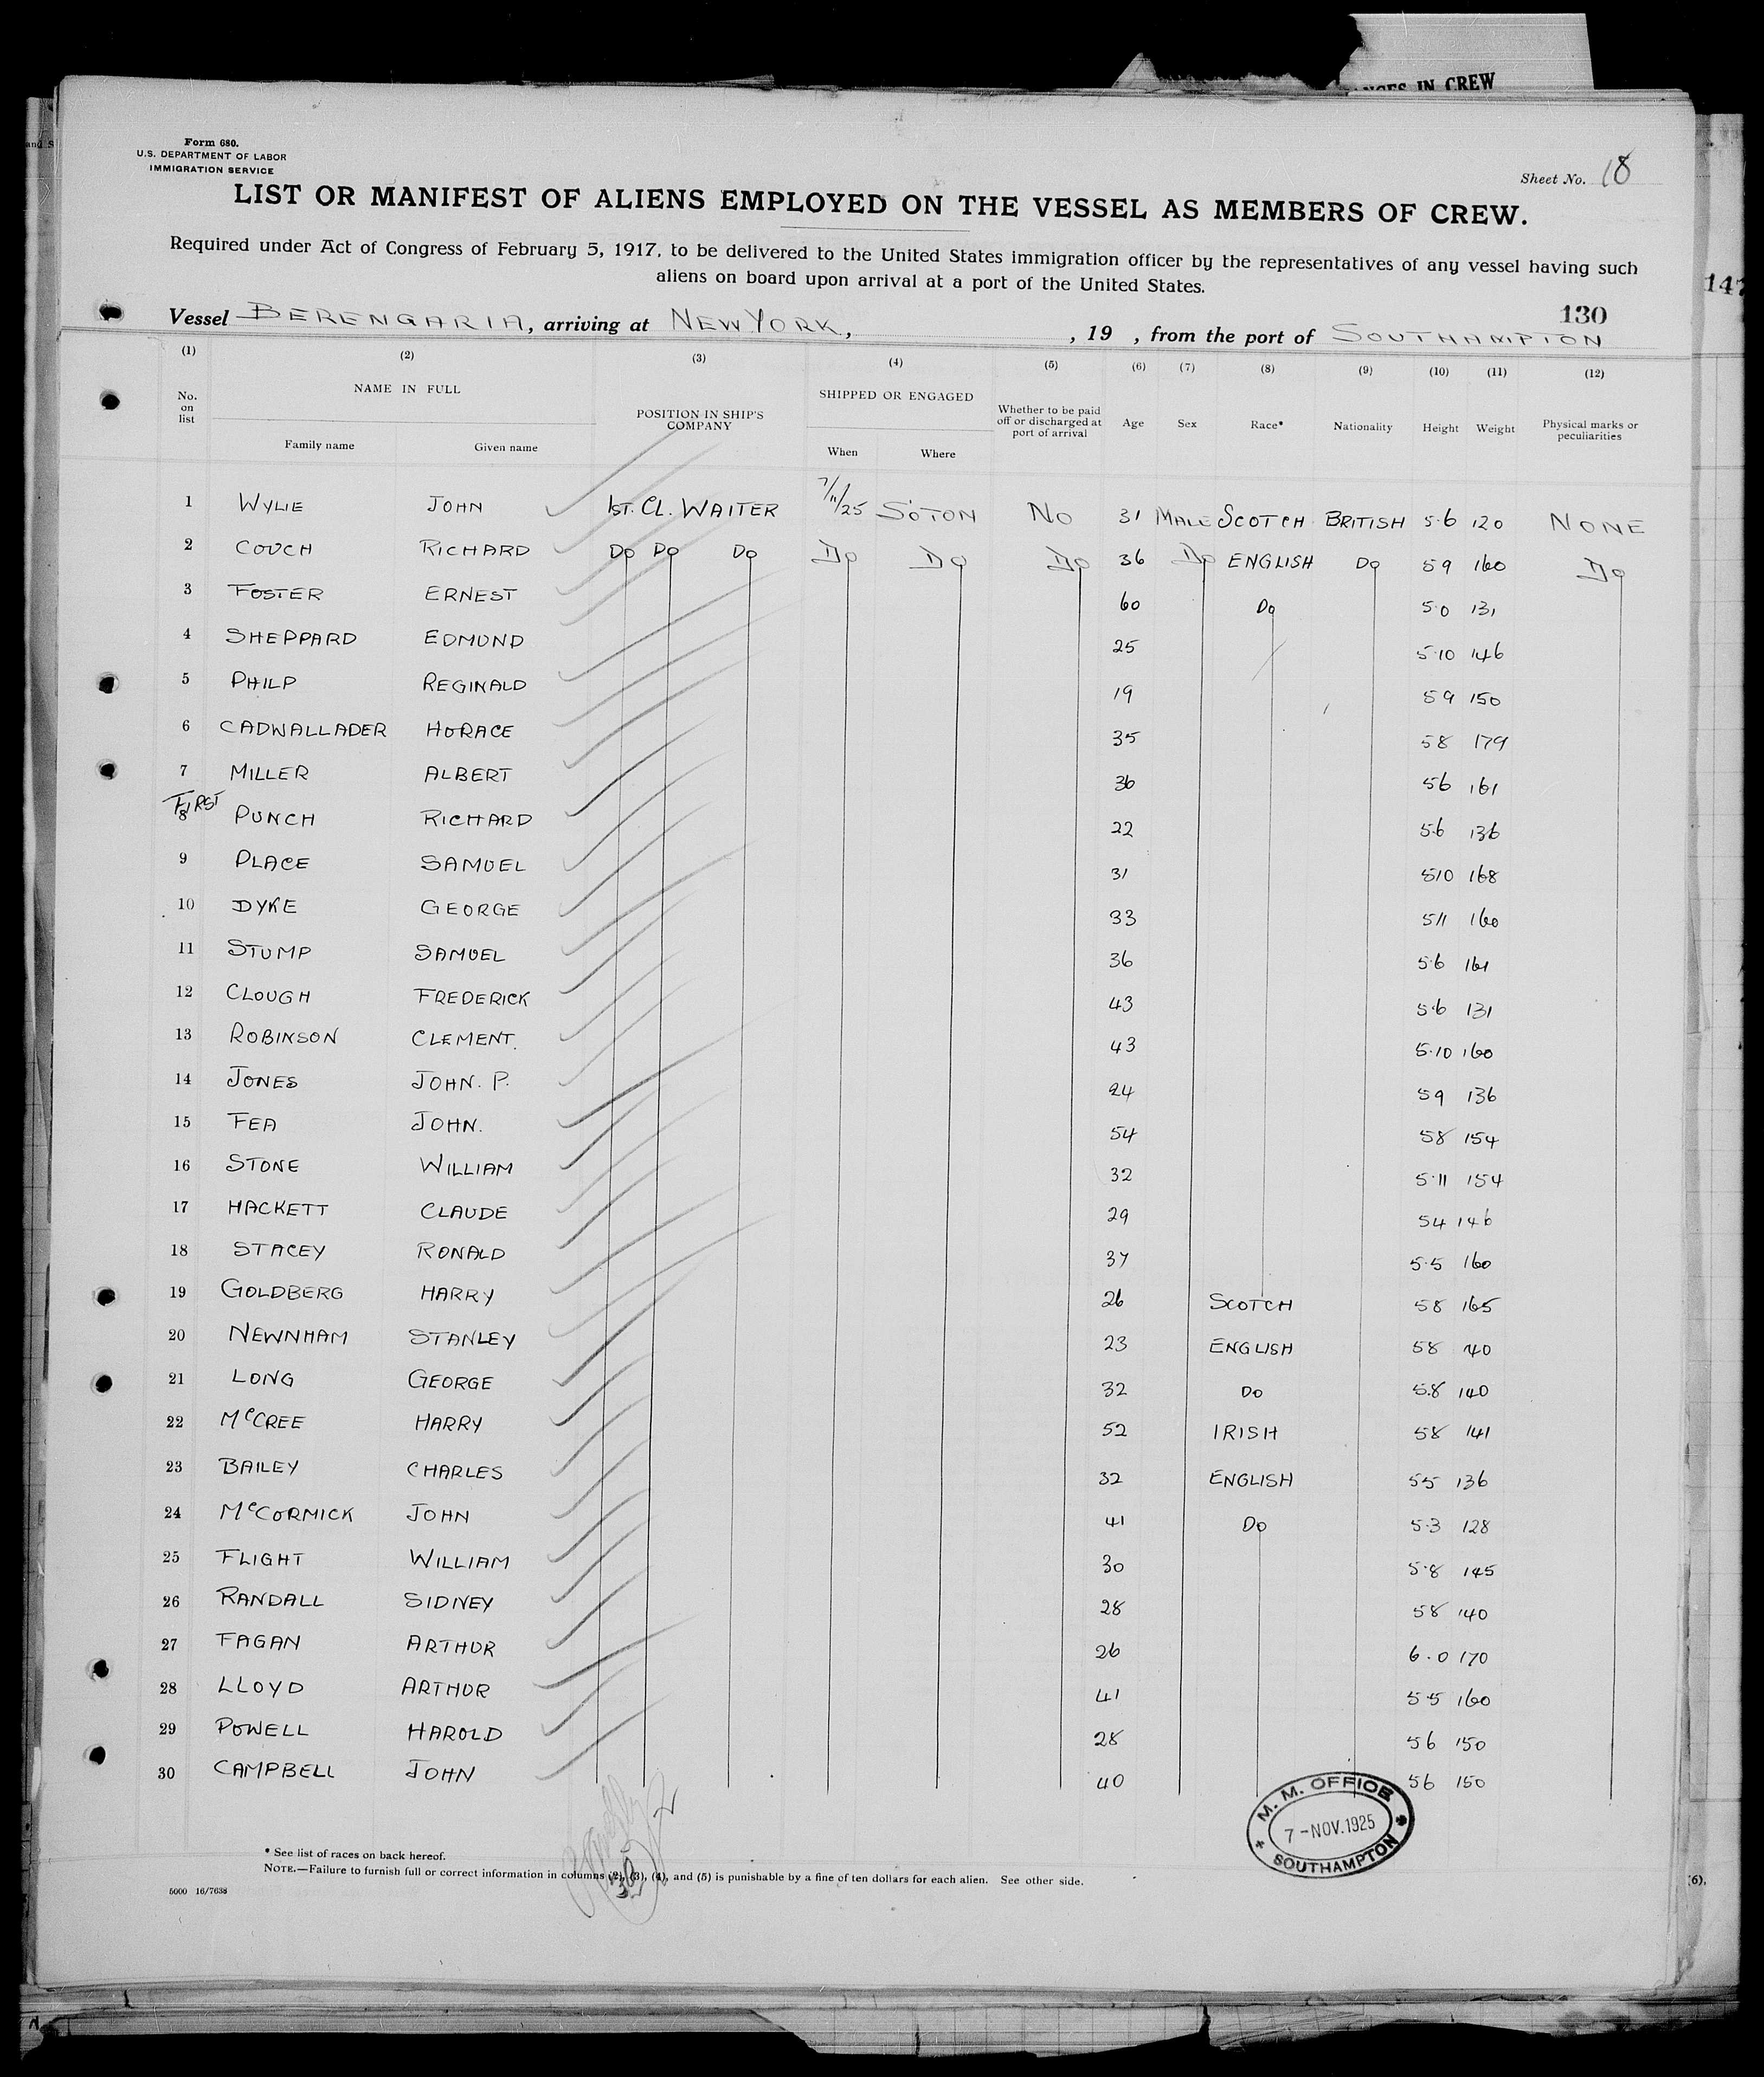 ANGES IN CREW
and S
Form 680.
U.S. DEPARTMENT OF LABOR
IMMIGRATION SERVICE
Sheet No. 18
LIST OR MANIFEST OF ALIENS EMPLOYED ON THE VESSEL AS MEMBERS OF CREW.
Required under Act of Congress of February 5, 1917, to be delivered to the United States immigration officer by the representatives of any vessel having such
aliens on board upon arrival at a port of the United States.
147
130
Vessel BERENGARIA, arriving at NEW YORK, , 19 , from the port of SOUTHAMPTON
(1) (2) (3) (4) (5) (6) (7) (8) (9) (10) (11) (12)
No. on list NAME IN FULL Family name Given name POSITION IN SHIP'S COMPANY SHIPPED OR ENGAGED When Where Whether to be paid off or discharged at port of arrival Age Sex Race* Nationality Height Weight Physical marks or peculiarities
1 WYLIE JOHN 1ST. CL. WAITER 7/11/25 S'OTON NO 31 MALE SCOTCH BRITISH 5·6 120 NONE
2 COUCH RICHARD DO DO DO DO DO DO 36 DO ENGLISH DO 5 9 160 DO
3 FOSTER ERNEST 60 DO 5·0 131
4 SHEPPARD EDMUND 25 5·10 146
5 PHILP REGINALD 19 5 9 150
6 CADWALLADER HORACE 35 5 8 179
7 MILLER ALBERT 36 5 6 161
FIRST
8 PUNCH RICHARD 22 5·6 136
9 PLACE SAMUEL 31 5 10 168
10 DYKE GEORGE 33 5 11 160
11 STUMP SAMUEL 36 5·6 161
12 CLOUGH FREDERICK 43 5·6 131
13 ROBINSON CLEMENT. 43 5·10 160
14 JONES JOHN. P. 24 5 9 136
15 FEA JOHN. 54 5 8 154
16 STONE WILLIAM 32 5·11 154
17 HACKETT CLAUDE 29 5 4 146
18 STACEY RONALD 37 5·5 160
19 GOLDBERG HARRY 26 SCOTCH 5 8 165
20 NEWNHAM STANLEY 23 ENGLISH 5 8 140
21 LONG GEORGE 32 DO 5.8 140
22 McCREE HARRY 52 IRISH 5 8 141
23 BAILEY CHARLES 32 ENGLISH 5 5 136
24 McCORMICK JOHN 41 DO 5·3 128
25 FLIGHT WILLIAM 30 5·8 145
26 RANDALL SIDNEY 28 5 8 140
27 FAGAN ARTHUR 26 6·0 170
28 LLOYD ARTHUR 41 5 5 160
29 POWELL HAROLD 28 5 6 150
30 CAMPBELL JOHN 40 5 6 150
M. M. OFFICE
7-NOV.1925
SOUTHAMPTON
* See list of races on back hereof.
NOTE.—Failure to furnish full or correct information in columns (2), (3), (4), and (5) is punishable by a fine of ten dollars for each alien. See other side.
30
5000 16/7638
(6),